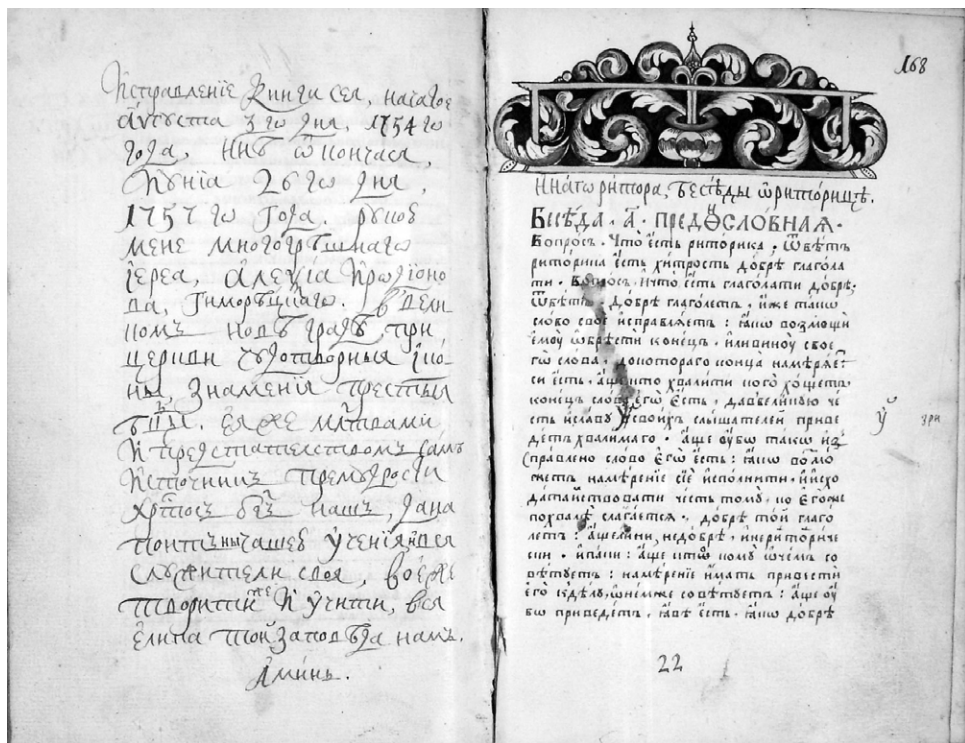 Исправленїе Книги сея, начатое
августа 3 го дня, 1754 го
года, нн҃ѣ ѡкончася,
Іꙋнїа 26 го дня,
1757 го года. рꙋкою
мене многогрѣшнагѡ
їереа, алеѯїа Їродїоно
ва, Тимор
номъ новѣ градѣ, при
церкви чꙋдотворныя їко́
ны, знаменїя прест҃ыя
бц҃ы. еяже мл҃твами,
И предстателствомъ самъ
Источникъ премꙋдрости
Хрт҃осъ бг҃ъ нашъ, да на
ꙋченїя вся
слꙋжители своя, во еже
творити же И ꙋчити, вся
елика той заповѣда намъ.
Аминь.
168
Инагѡ ритора, бесѣды ѡ риторицѣ.
Бесѣда · а҃ · предꙋсловная ·
Вопросъ · Что есть риторика · ѿвѣтъ
риторика есть хитрость добрѣ глагола
ти · Вопросъ, и что есть глаголати добрѣ;
ѿвѣтъ · добрѣ глаголетъ · иже такѡ
слово свое исправляетъ : ꙗкѡ возмощи
емоу ѡбрѣсти конецъ · или виноу свое
гѡ слова · до котораго конца намѣряет
си есть · аще кто хвалити кого хощетъ ·
конецъ слова егѡ есть · да в великую че
сть и славу ꙋ своихъ слышателей приве
детъ хвалимаго · аще ѹбѡ такѡ из
справлено слово егѡ есть : ꙗкѡ возмо
жетъ намѣренїе сїе исполнити · и исхо
датайствовати честь томꙋ · ко егоже
похвалѣ слагается · добрѣ той глаго
летъ : аще ли ни, недобрѣ, и не риториче
ски · и паки : аще кто кому ѡ чемъ со
вѣтуетъ : намѣренїе имать привести
его к дѣлу, ѡ немже совѣтуетъ : аще оу
бѡ приведетъ · ꙗвѣ есть · ꙗкѡ добрѣ
зри
22